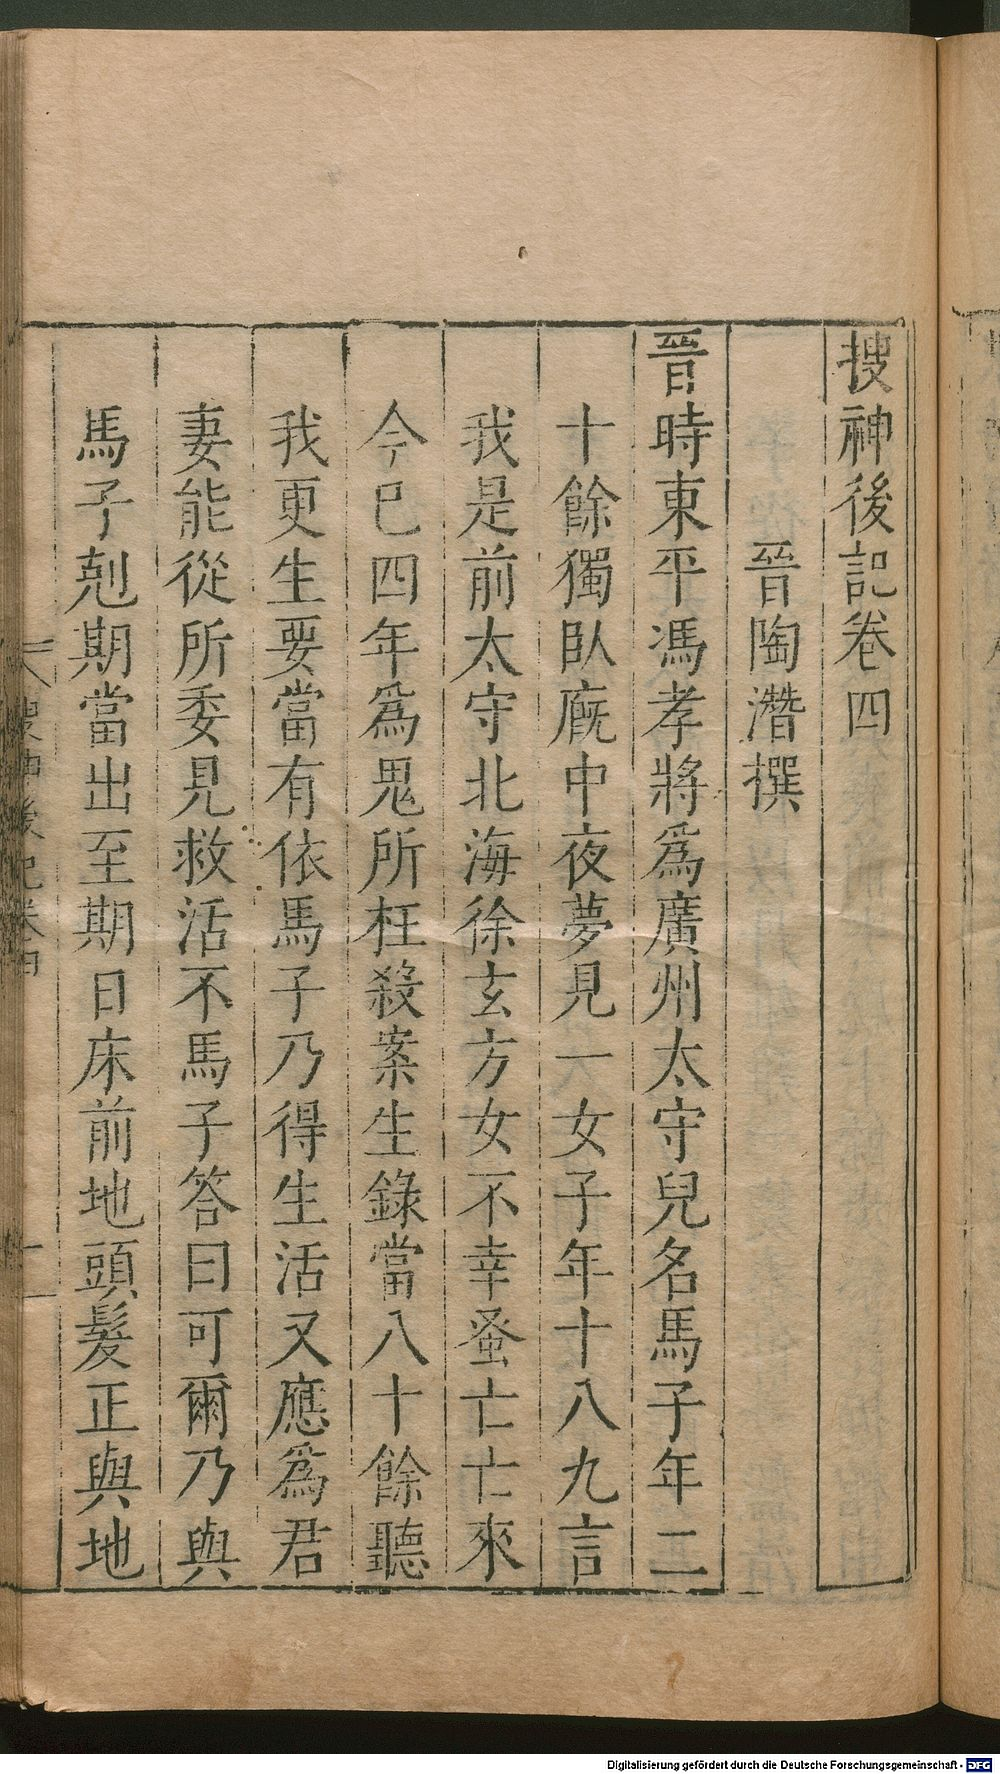 搜神後記卷四
晉陶潛撰
晉時東平馮孝將爲廣州太守兒名馬子年二
十餘獨臥廐中夜夢見一女子年十八九言
我是前太守北海徐玄方女不幸蚤亡亡來
今巳四年爲鬼所枉殺案生錄當八十餘聽
我更生要當有依馬子乃得生活又應爲君
妻能從所委見救活不馬子答曰可爾乃與
馬子剋期當出至期日床前地頭髮正與地
搜神後記卷四
一
Digitalisierung gefördert durch die Deutsche Forschungsgemeinschaft - DFG